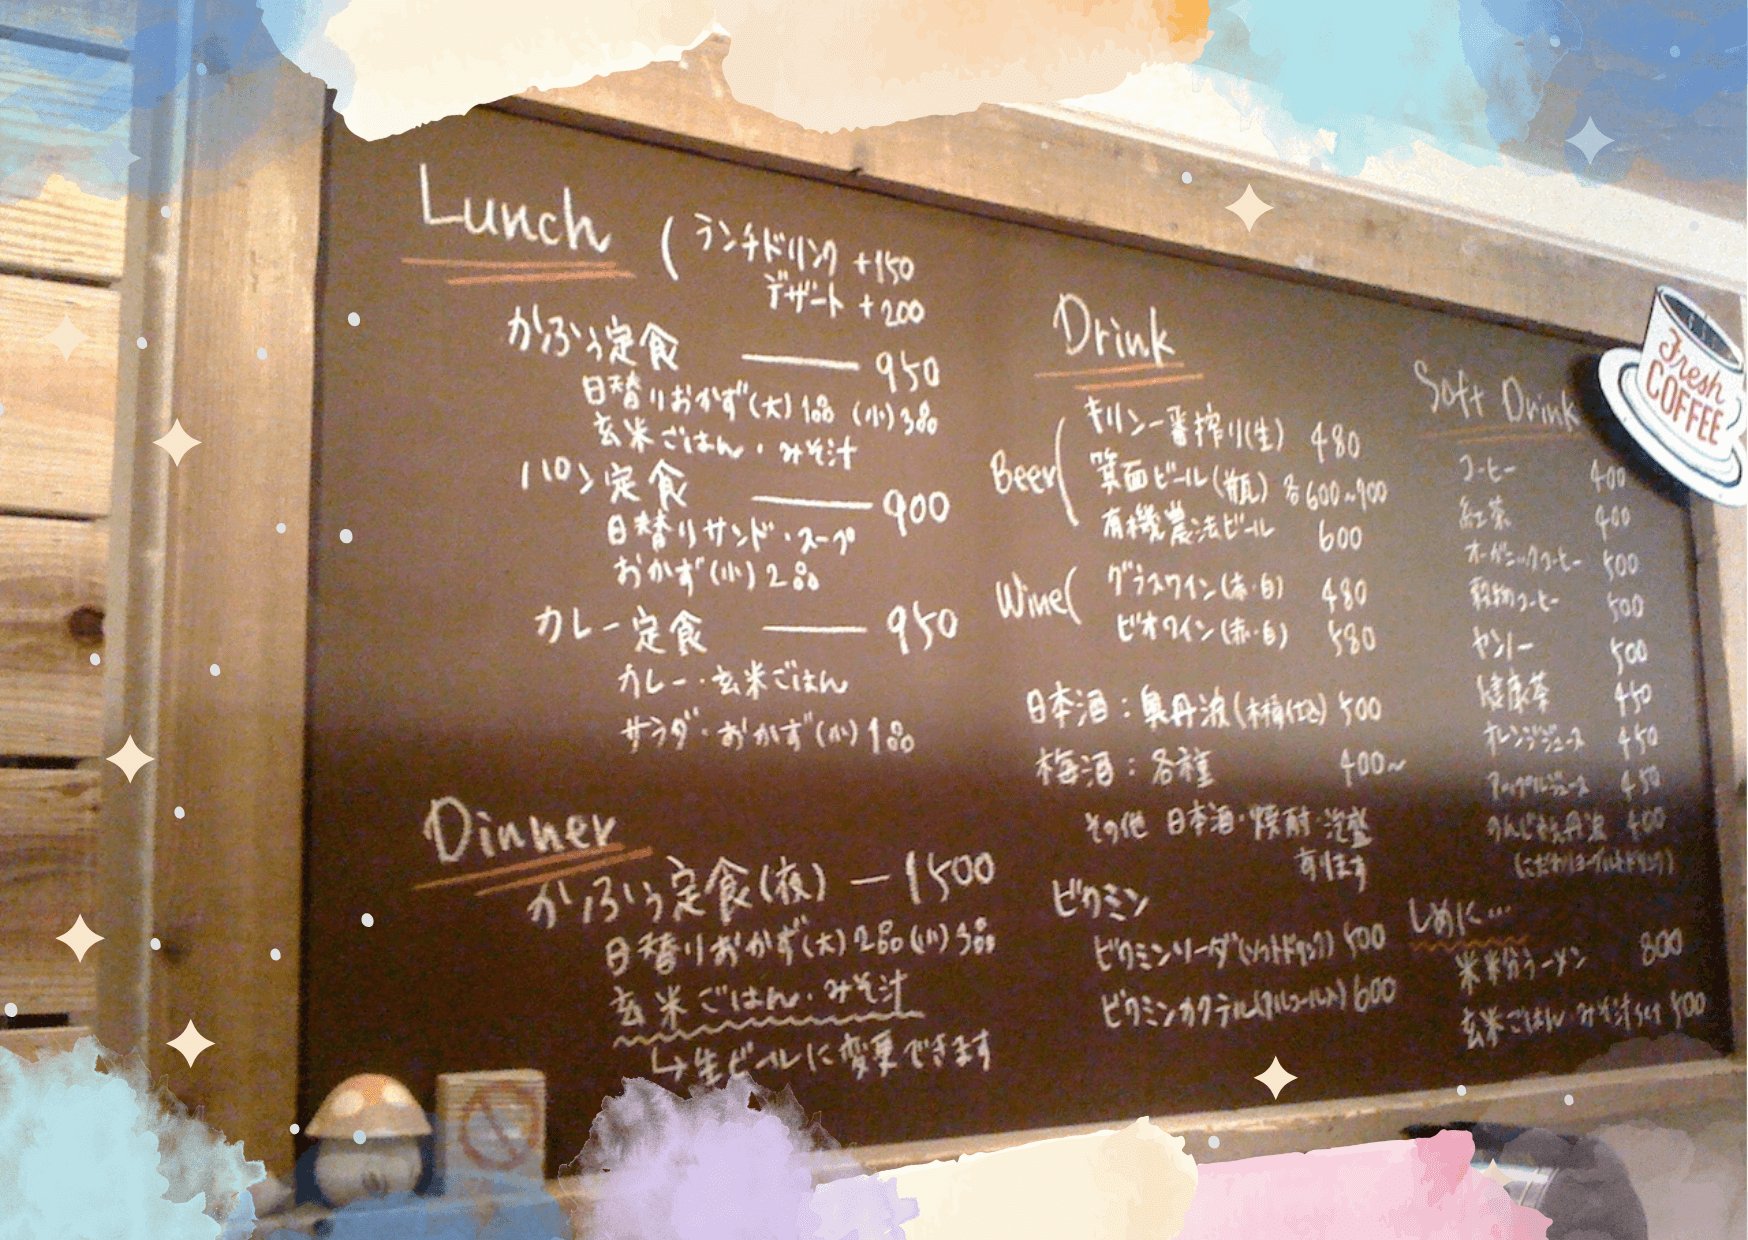 Lunch
(ランチドリンク +150
デザート +200
かふう定食 —— 950
日替りおかず(大)1品 (小)3品
玄米ごはん・みそ汁
パン定食 —— 900
日替りサンド・スープ
おかず(小)2品
カレー定食 —— 950
カレー・玄米ごはん
サラダ・おかず(小)1品
Dinner
かふう定食(夜) — 1500
日替りおかず(大)2品(小)3品
玄米ごはん・みそ汁
↳生ビールに変更できます
Drink
Beer(
キリン一番搾り(生) 480
箕面ビール(瓶) 各600~900
有機農法ビール 600
Wine(
グラスワイン(赤・白) 480
ビオワイン(赤・白) 580
日本酒:奥丹波(木桶仕込) 500
梅酒:各種 400~
その他 日本酒・焼酎・泡盛
有ります
ビタミン
ビタミンソーダ(ソフトドリンク) 500
ビタミンカクテル(アルコール入) 600
Soft Drink
コーヒー 400
紅茶 400
オーガニックコーヒー 500
穀物コーヒー 500
ヤンノー 500
健康茶 450
オレンジジュース 450
アップルジュース 450
丹波 400
(こだわりヨーグルトドリンク)
しめに…
米粉ラーメン 800
玄米ごはん・みそ汁 500
Fresh
COFFEE